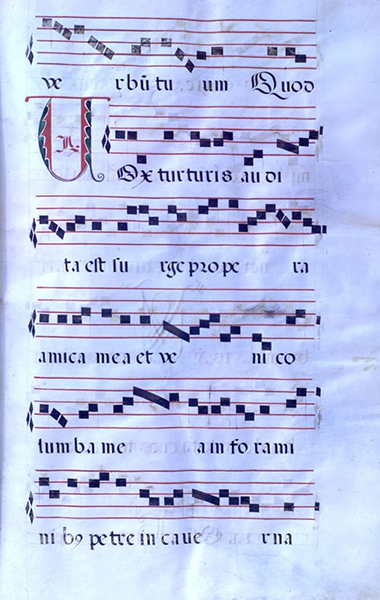 ve rbũ tu um Quod
Vox turturis au di
ta est su rge prope ra
amica mea et ve ni co
lumba me a in fo rami
ni bꝯ petre in cave rna